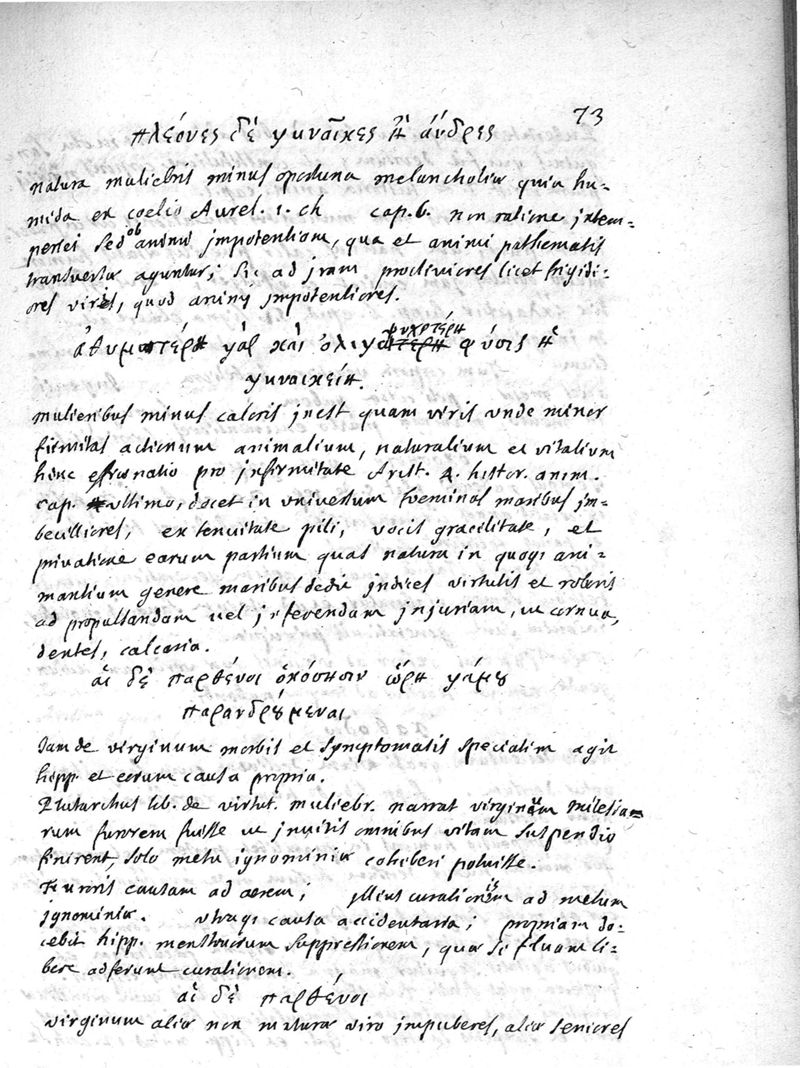 73
πλέονες δὲ γυναῖκες ἢ ἄνδρες
natura muliebris minus oportuna melancholiæ quia hu-
mida ex coelio Aurel. 1. ch cap. 6. non ratione intem-
periei sed ob animi impotentiam, qua et animi pathematis
transversæ aguntur; sic ad iram procliviores licet frigidi-
ores viris, quod animi impotentiores.
ἀθυμοτέρη γὰρ καὶ ὀλιγοτέρη ψυχοτέρη φύσις ἡ
γυναικείη.
mulieribus minus caloris inest quam viris unde minor
firmitas actionum animalium, naturalium et vitalium
hinc effœminatio pro infirmitate Arist. 4. histor. anim.
cap. ultimo, docet in universum foeminas maribus im-
becilliores, ex tenuitate pili, vocis gracilitate, et
privatione earum partium quas natura in quoqꝫ ani-
mantium genere maribus dedit indices virtutis et roboris
ad propulsandam vel inferendam injuriam, ut cornua,
dentes, calcaria.
αἱ δὲ παρθένοι ὁκόσησιν ὥρη γάμου
παρανδρούμεναι
Jam de virginum morbis et symptomatis speciatim agit
hipp. et eorum causa propria.
Plutarchus lib. de virtut. muliebr. narrat virginum milesia-
rum furorem fuisse ut invitis omnibus vitam suspendio
finirent, solo metu ignominiæ cohiberi potuisse.
Furoris causam ad aerem; illius curationem ad metum
ignominiæ. utraqꝫ causa accidentaria; propriam do-
cebit hipp. menstruorum suppressionem, quæ si fluant li-
bere adferunt curationem.
αἱ δὲ παρθένοι
virginum aliæ non maturæ viro impuberes, aliæ seniores